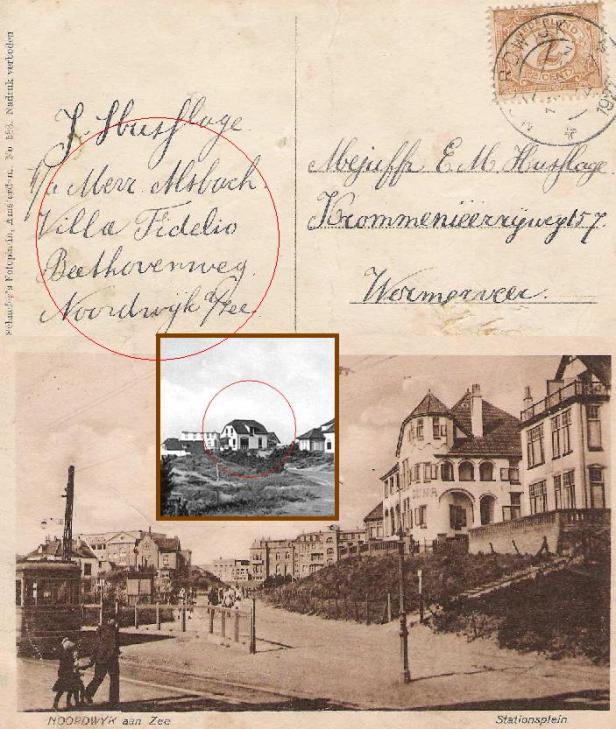 Schaefer's Fotoprint, Amsterdam. No 586. Nadruk verboden
J. Husflage.
p/a Merr. Alsbach.
Villa Fidelio
Beethovenweg.
Noordwijk a/Zee.
NEDERLAND
Mejuffr E. M. Husflage
Krommenieërrijweg 157.
Wormerveer.
NOORDWYK aan Zee
Stationsplein